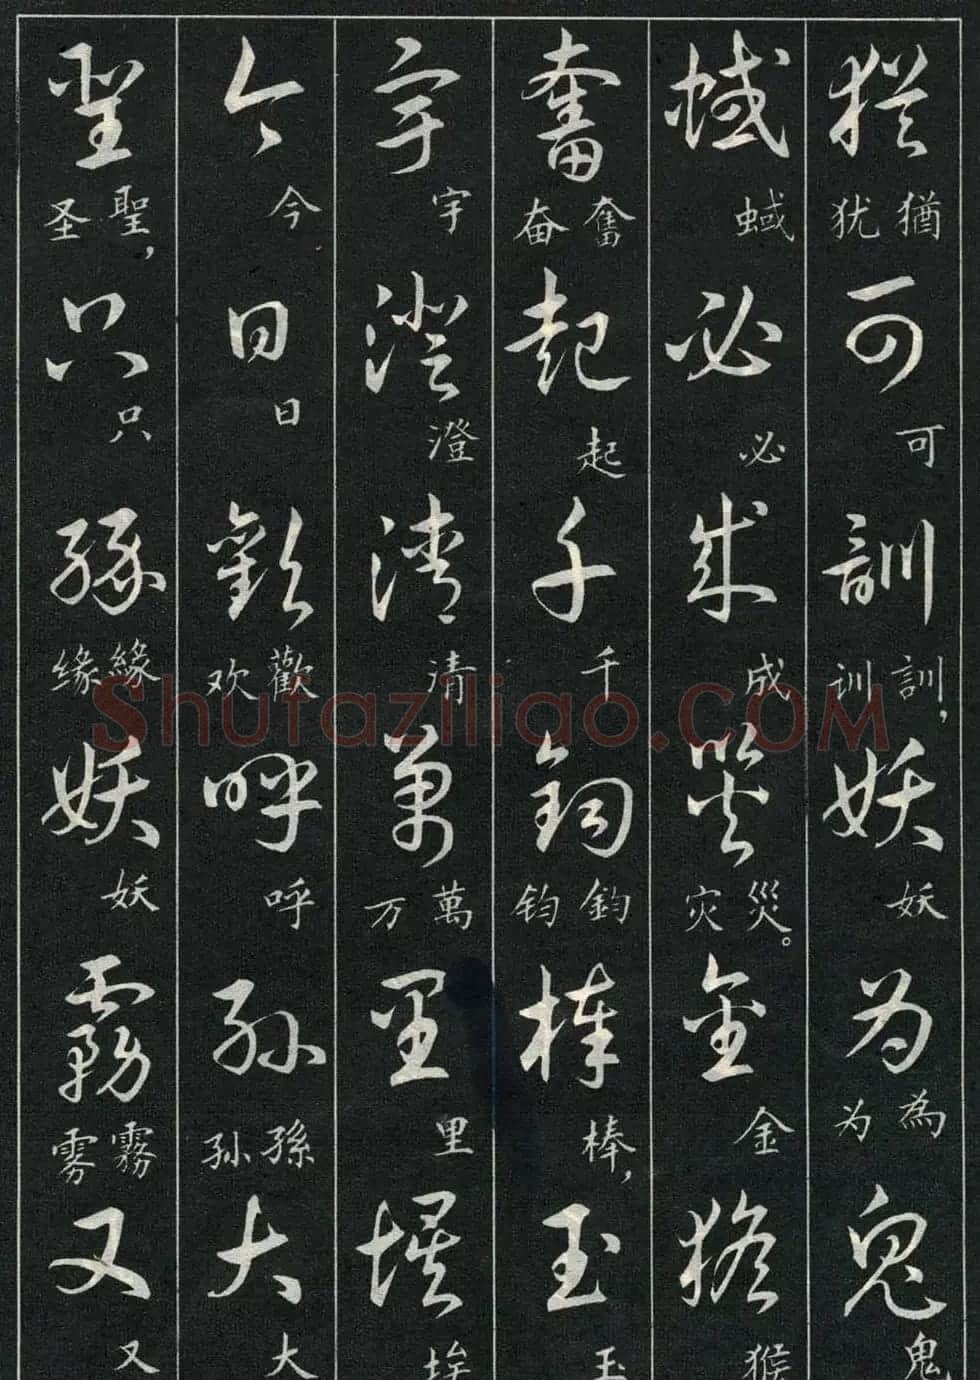 猶 猶 犹 可 可 訓 訓, 训 妖 妖 為 為 为 鬼 鬼
蜮 蜮 必 必 成 成 災 災。 灾 金 金 猴 猴
奮 奮 奋 起 起 千 千 鈞 鈞 钧 棒 棒, 玉 玉
宇 宇 澄 澄 清 清 萬 萬 万 里 里 埃 埃
今 今 日 日 歡 歡 欢 呼 呼 孫 孫 孙 大 大
聖 聖, 圣 只 只 緣 緣 缘 妖 妖 霧 霧 雾 又 又
Shufaziliao.COM